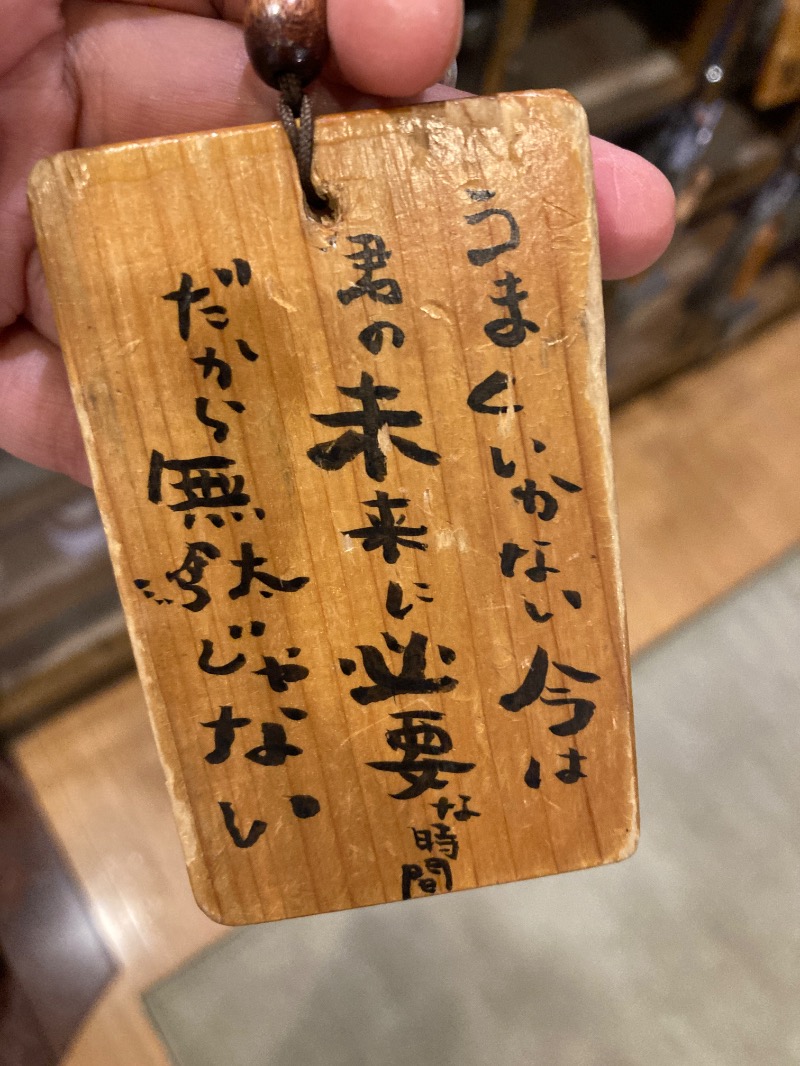 うまくいかない今は
君の未来に必要な時間
だから無駄じゃない